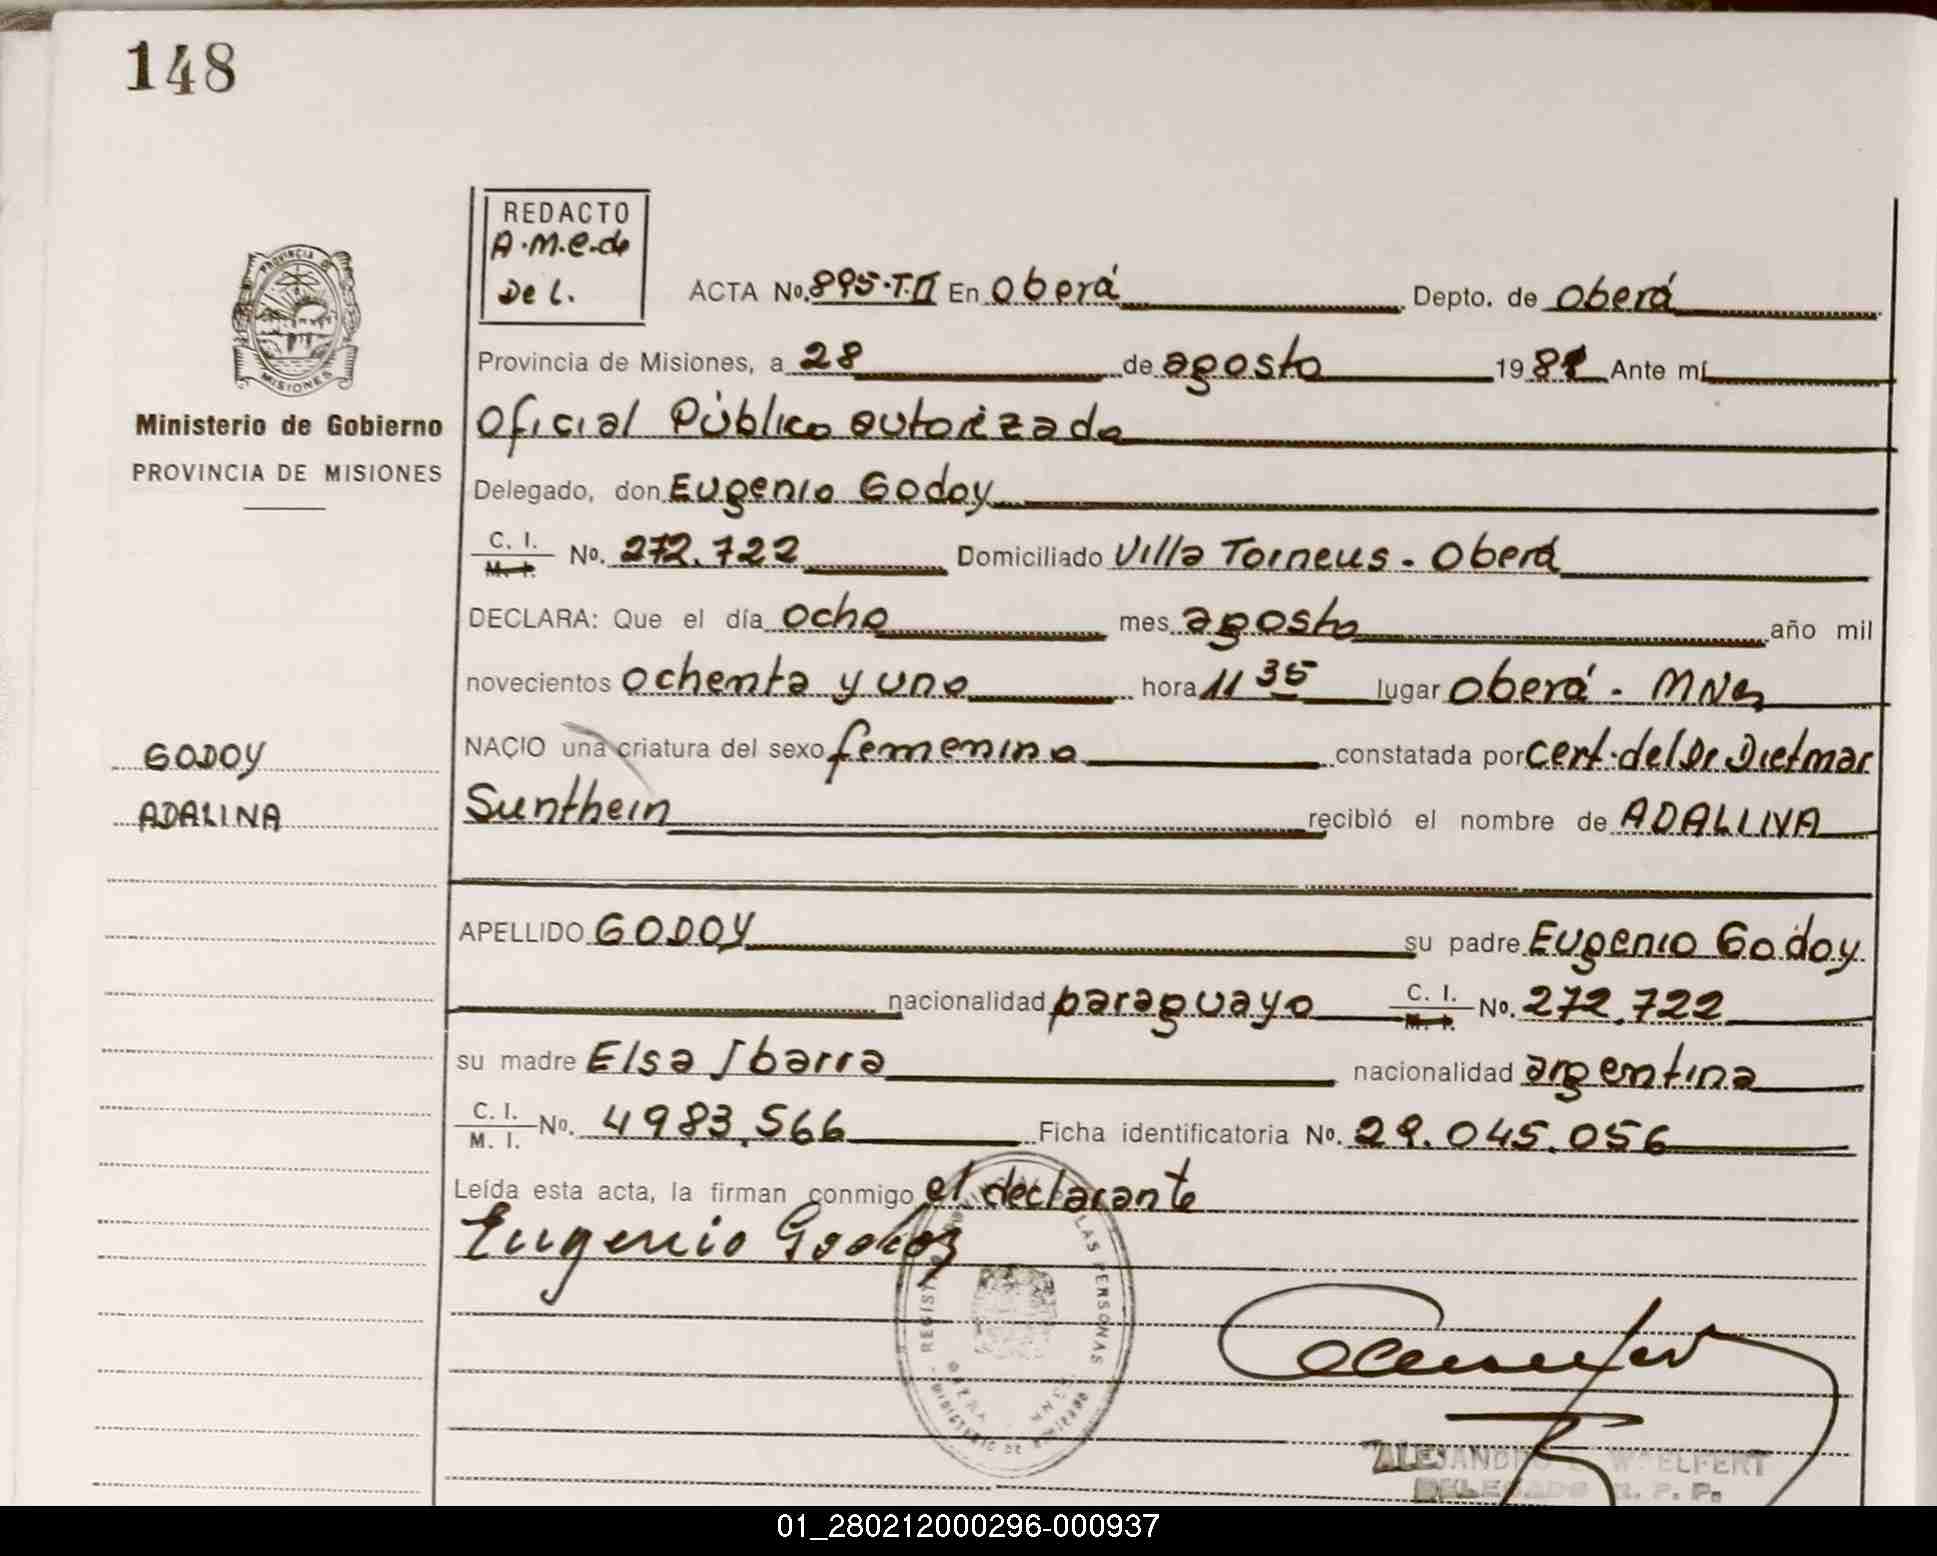 148
REDACTO
A.M.C. de
De L.
ACTA No. 895-T.II En Oberá Depto. de Oberá
Provincia de Misiones, a 28 de agosto 1981 Ante mí
Ministerio de Gobierno
PROVINCIA DE MISIONES
PROVINCIA DE
MISIONES
Oficial Público autorizado
Delegado, don Eugenio Godoy
C. I. M. I. No. 272.722 Domiciliado Villa Torneus - Oberá
DECLARA: Que el día ocho mes agosto año mil
novecientos ochenta y uno hora 11 35 lugar Oberá - MNes
GODOY
ADALINA
NACIO una criatura del sexo femenino constatada por cert. del Dr Dietmar
Sunthein recibió el nombre de ADALINA
APELLIDO GODOY su padre Eugenio Godoy
nacionalidad paraguayo C. I. M. I. No. 272.722
su madre Elsa Ibarra nacionalidad argentina
C. I. M. I. No. 4983.566 Ficha identificatoria No. 29.045.056
Leída esta acta, la firman conmigo el declarante
Eugenio Godoy
REGISTRO LAS PERSONAS
MINISTERIO DE
ALEJANDRO WAELFERT
DELEGADO R. P. P.
01_280212000296-000937